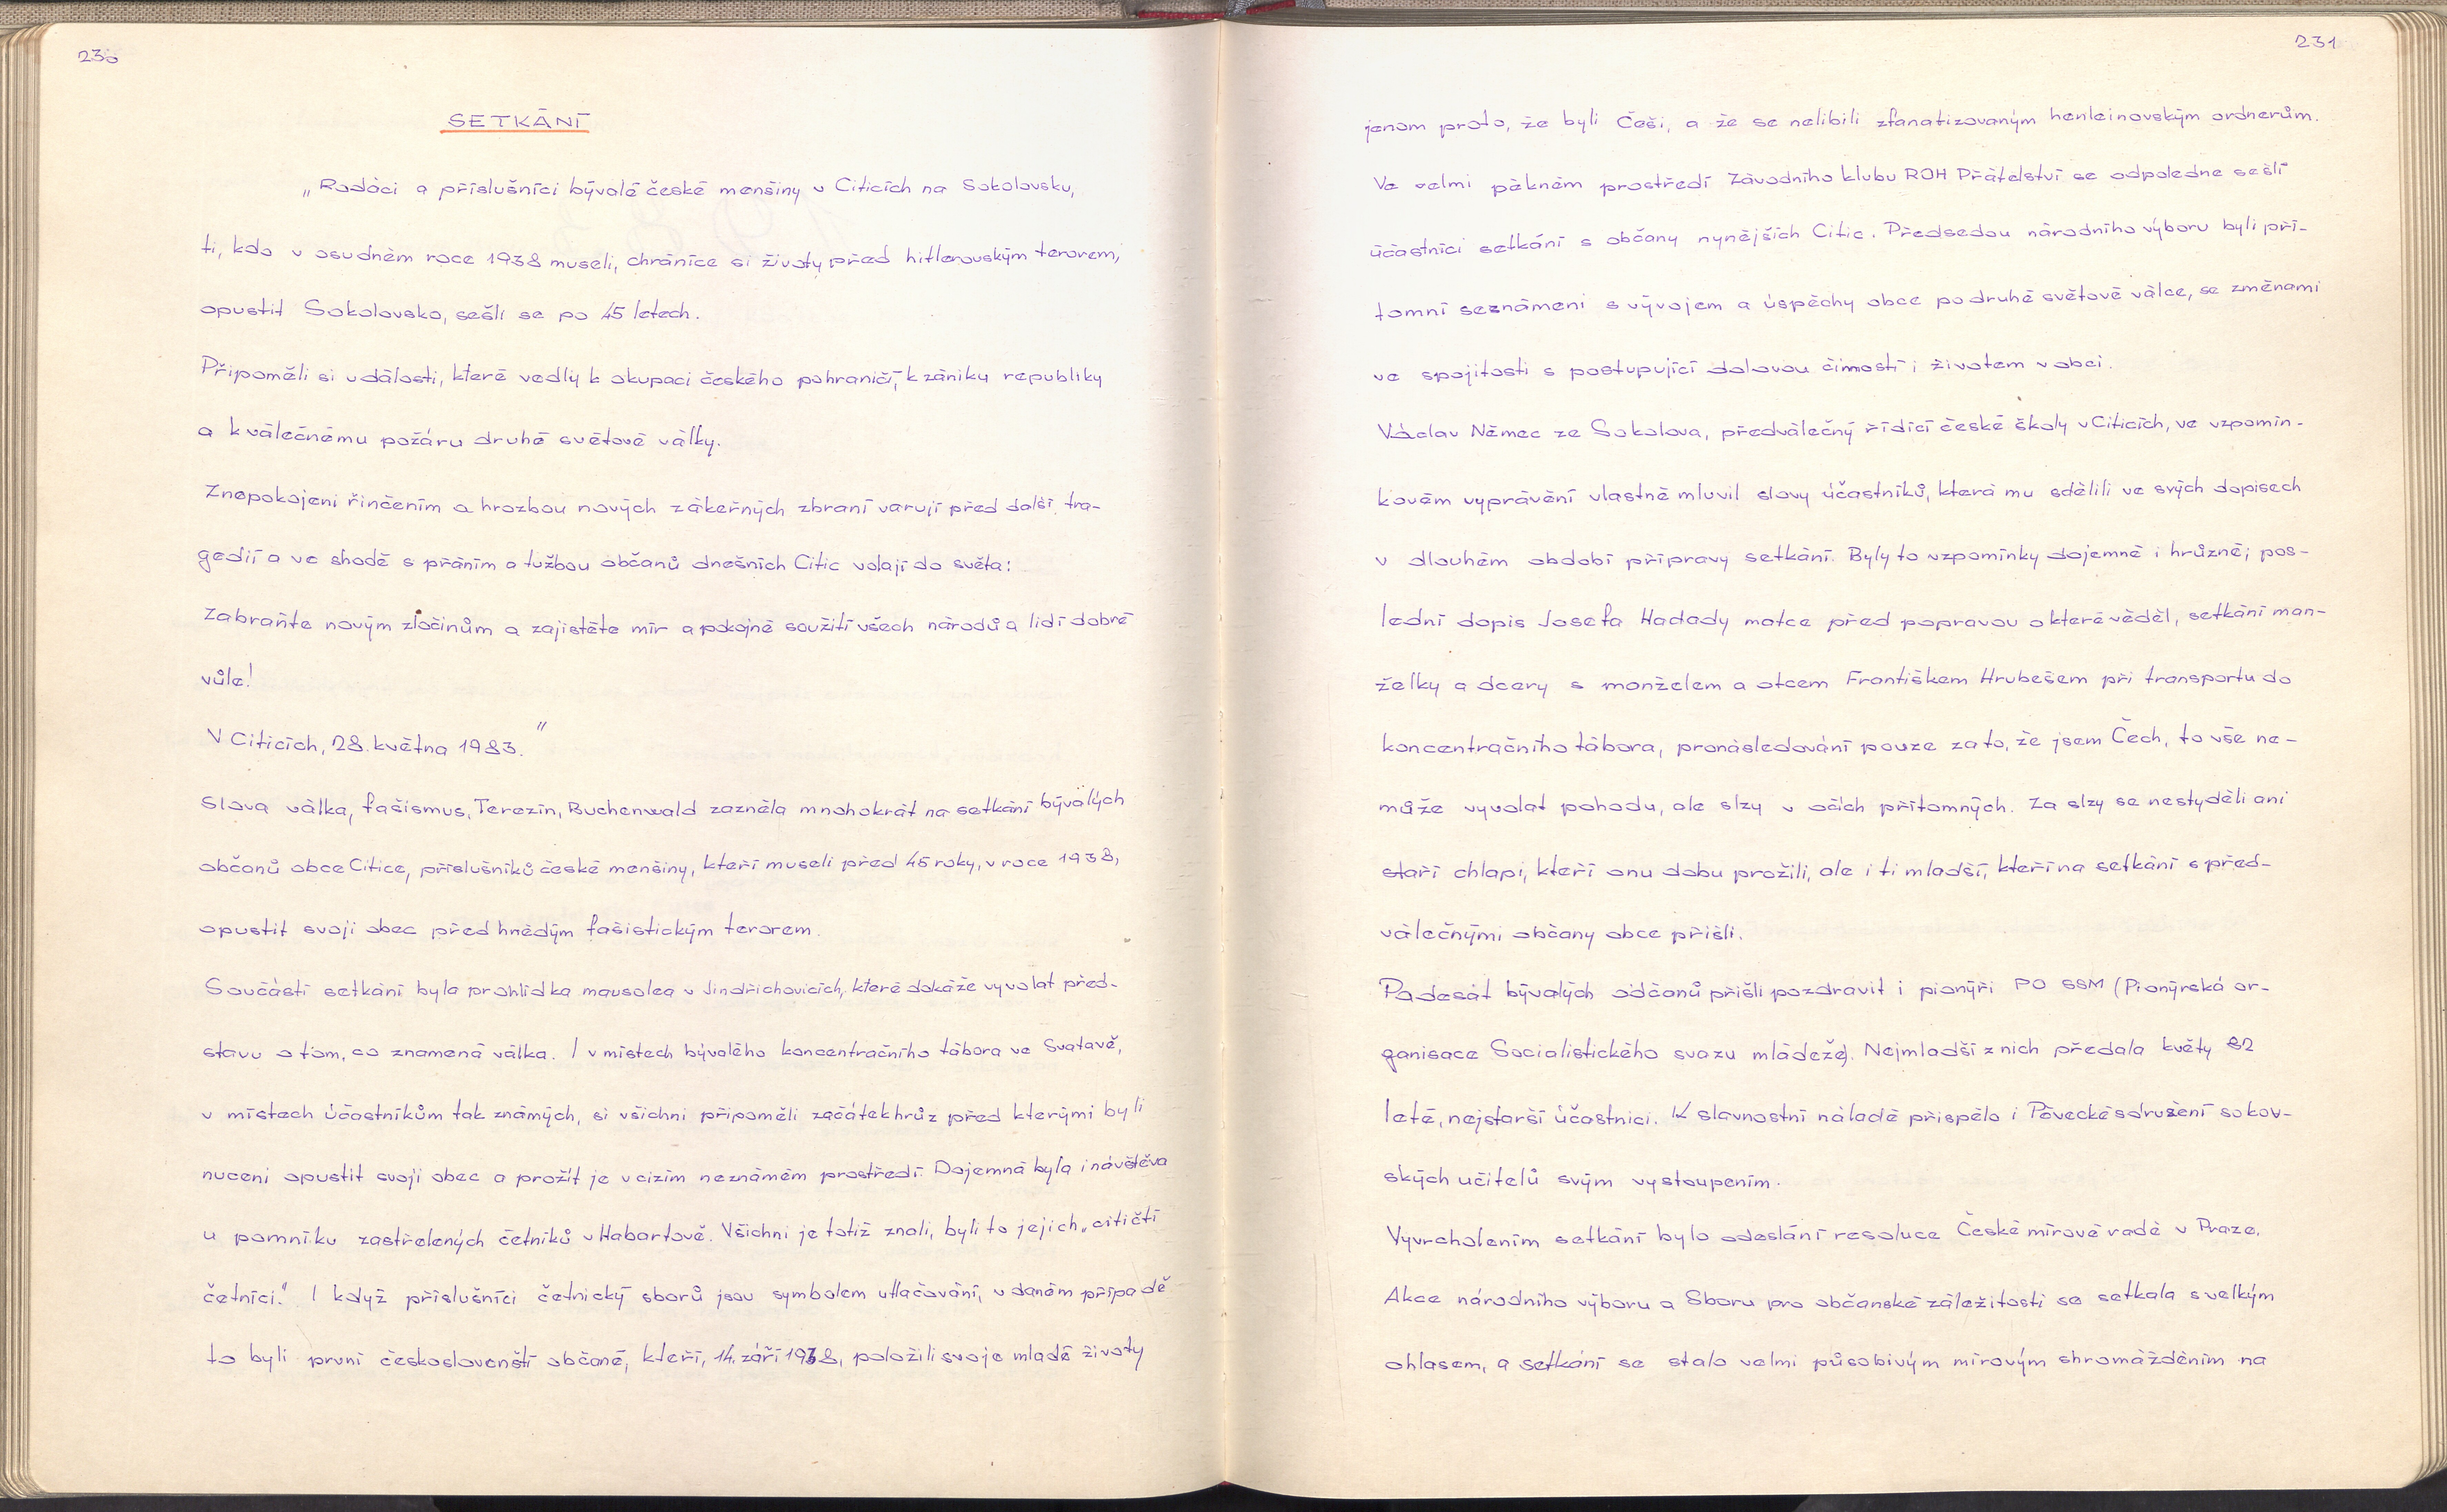 230
SETKÁNÍ
„Rodáci a příslušníci bývalé české menšiny v Citicích na Sokolovsku,
ti, kdo v osudném roce 1938 museli, chráníce si životy před hitlerovským terorem,
opustit Sokolovsko, sešli se po 45 letech.
Připoměli si události, které vedly k okupaci českého pohraničí, k zániku republiky
a k válečnému požáru druhé světové války.
Znepokojeni řinčením a hrozbou nových zákeřných zbraní varují před další tra-
gedií a ve shodě s přáním a tužbou občanů dnešních Citic volají do světa:
Zabraňte novým zločinům a zajistěte mír a pokojné soužití všech národů a lidí dobré
vůle!
V Citicích, 28. května 1983.“
Slova válka, fašismus, Terezín, Buchenwald zazněla mnohokrát na setkání bývalých
občanů obce Citice, příslušníků české menšiny, kteří museli před 45 roky, v roce 1938,
opustit svoji obec před hnědým fašistickým terorem.
Součástí setkání byla prohlídka mausolea v Jindřichovicích, které dokáže vyvolat před-
stavu o tom, co znamená válka. I v místech bývalého koncentračního tábora ve Svatavě,
v místech účastníkům tak známých, si všichni připoměli začátek hrůz před kterými byli
nuceni opustit svoji obec a prožít je v cizím neznámém prostředí. Dojemná byla i návštěva
u pomníku zastřelených četníků v Habartově. Všichni je totiž znali, byli to jejich „citičtí
četníci.“ I když příslušníci četnický sborů jsou symbolem utlačování, v daném případě
to byli první českoslovenští občané, kteří, 14. září 1938, položili svoje mladé životy
231
jenom proto, že byli Češi, a že se nelíbili zfanatizovaným henleinovským ordnerům.
Ve velmi pěkném prostředí Závodního klubu ROH Přátelství se odpoledne sešli
účastníci setkání s občany nynějších Citic. Předsedou národního výboru byli pří-
tomní seznámeni s vývojem a úspěchy obce po druhé světové válce, se změnami
ve spojitosti s postupující dolovou čimostí i životem v obci.
Václav Němec ze Sokolova, předválečný řídící české školy v Citicích, ve vzpomín-
kovém vyprávění vlastně mluvil slovy účastníků, která mu sdělili ve svých dopisech
v dlouhém období přípravy setkání. Byly to vzpomínky dojemné i hrůzné; pos-
lední dopis Josefa Hadady matce před popravou o které věděl, setkání man-
želky a dcery s manželem a otcem Františkem Hrubešem při transportu do
koncentračního tábora, pronásledování pouze za to, že jsem Čech, to vše ne-
může vyvolat pohodu, ale slzy v očích přítomných. Za slzy se nestyděli ani
staří chlapi, kteří onu dobu prožili, ale i ti mladší, kteří na setkání s před-
válečnými občany obce přišli.
Padesát bývalých občanů přišli pozdravit i pionýři PO SSM (Pionýrská or-
ganisace Socialistického svazu mládeže). Nejmladší z nich předala květy 82
leté, nejstarší účastnici. K slavnostní náladě přispělo i Pěvecké sdružení sokov-
ských učitelů svým vystoupením.
Vyvrcholením setkání bylo odeslání resoluce České mírové radě v Praze.
Akce národního výboru a Sboru pro občanské záležitosti se setkala s velkým
ohlasem, a setkání se stalo velmi působivým mírovým shromážděním na